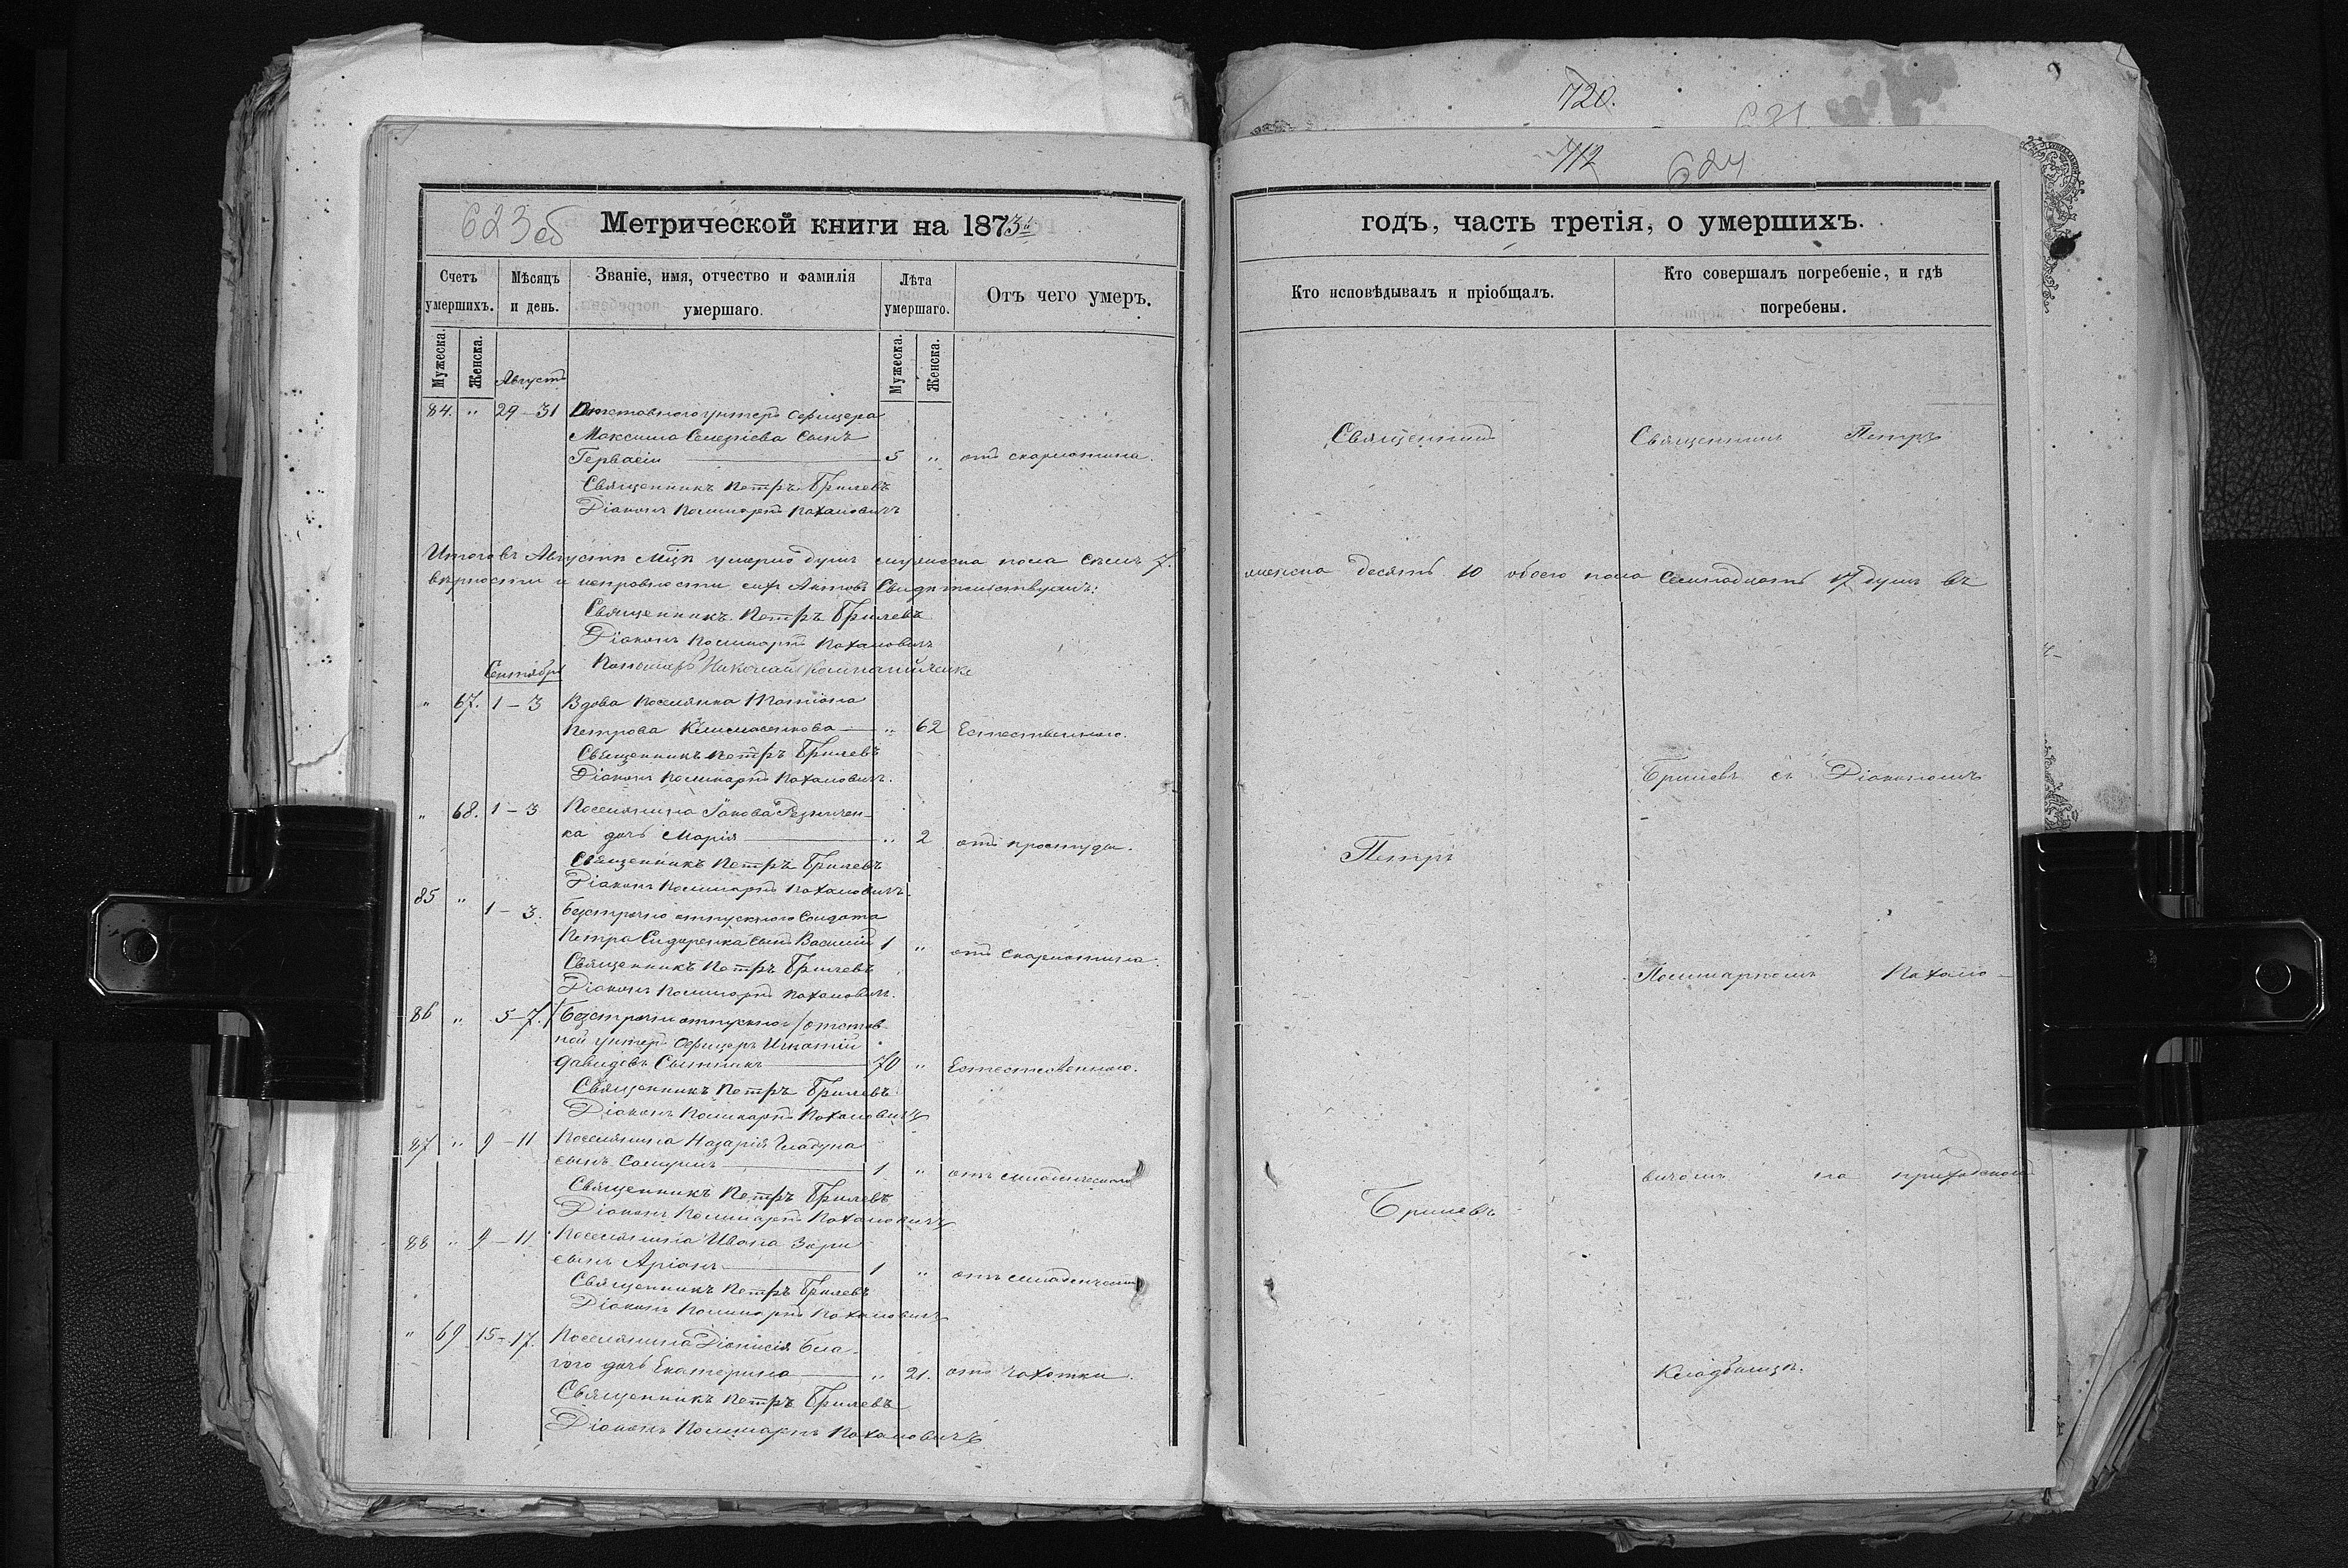 623 об
Метрической книги на 1873й
Счетъ умершихъ.
Мѣсяцъ и день.
Званіе, имя, отчество и фамилія умершаго.
Лѣта умершаго.
Отъ чего умеръ.
Мужеска.
Женска.
Мужеска.
Женска.
Августъ
84. " 29–31 Отставного унтеръ офицера
Максима сынъ
Гервасій 5 " отъ скарлатина.
Священникъ Петръ Брилевъ
Діаконъ Поликарпъ Пахаловичъ
Итого въ Августѣ Мцѣ умерло душъ мужеска пола семь 7.
вѣрности и исправности сихъ Актовъ Свидѣтельствуемъ:
Священникъ Петръ Брилевъ
Діаконъ Поликарпъ Пахаловичъ
Пономарь Николай
Сентябрь
" 67. 1–3 Вдова Поселянка Татіана
Петрова " 62 Естественною.
Священникъ Петръ Брилевъ
Діаконъ Поликарпъ Пахаловичъ.
" 68. 1–3 Поселянина Іакова Резничен-
ка дочь Марія " 2 отъ простуды.
Священникъ Петръ Брилевъ
Діаконъ Поликарпъ Пахаловичъ.
85 " 1–3. Безсрочно отпускного Солдата
Петра Сидоренка сынъ Василій 1 " отъ скарлатина.
Священникъ Петръ Брилевъ
Діаконъ Поликарпъ Пахаловичъ.
86 " 5–7. /Безсрочно отпускно/ отстав-
ной унтеръ Офицеръ Игнатій
Давидовъ Сытникъ 70 " Естественною.
Священникъ Петръ Брилевъ
Діаконъ Поликарпъ Пахаловичъ
87 " 9–11 Поселянина Назарія Гладуна
сынъ 1 " отъ младенческой
Священникъ Петръ Брилевъ
Діаконъ Поликарпъ Пахаловичъ
88 " 9–11 Поселянина Ивана
сынъ Аріонъ 1 " отъ младенческой
Священникъ Петръ Брилевъ
Діаконъ Поликарпъ Пахаловичъ
" 69 15–17. Поселянина Діонисія Бла-
гого дочь Екатерина " 21. отъ чахотки.
Священникъ Петръ Брилевъ
Діаконъ Поликарпъ Пахаловичъ
720.
631
712 624
годъ, часть третія, о умершихъ.
Кто исповѣдывалъ и пріобщалъ.
Кто совершалъ погребеніе, и гдѣ погребены.
Священникъ
Священникъ Петръ
женска десять 10 обоего пола семнадцать 17 душъ въ
Брилевъ съ Діакономъ
Петръ
Поликарпомъ Пахало-
вичемъ на приходскомъ
Брилевъ
Кладбищѣ.